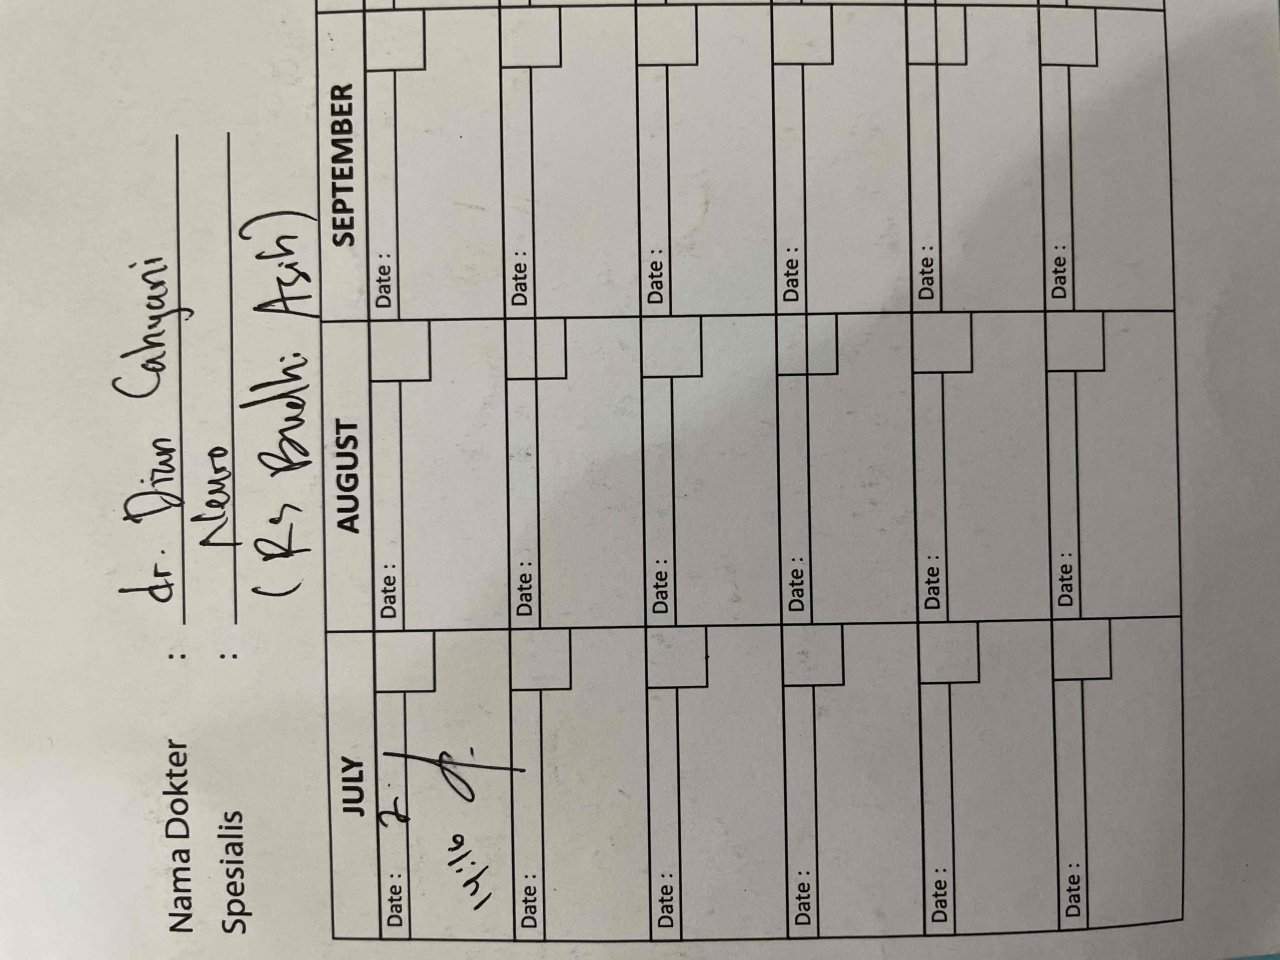 Nama Dokter : dr. Dian Cahyani
Spesialis : Neuro
(RS Budhi Asih)
JULY AUGUST SEPTEMBER
Date : 2 Date : Date :
14:16
Date : Date : Date :
Date : Date : Date :
Date : Date : Date :
Date : Date : Date :
Date : Date : Date :